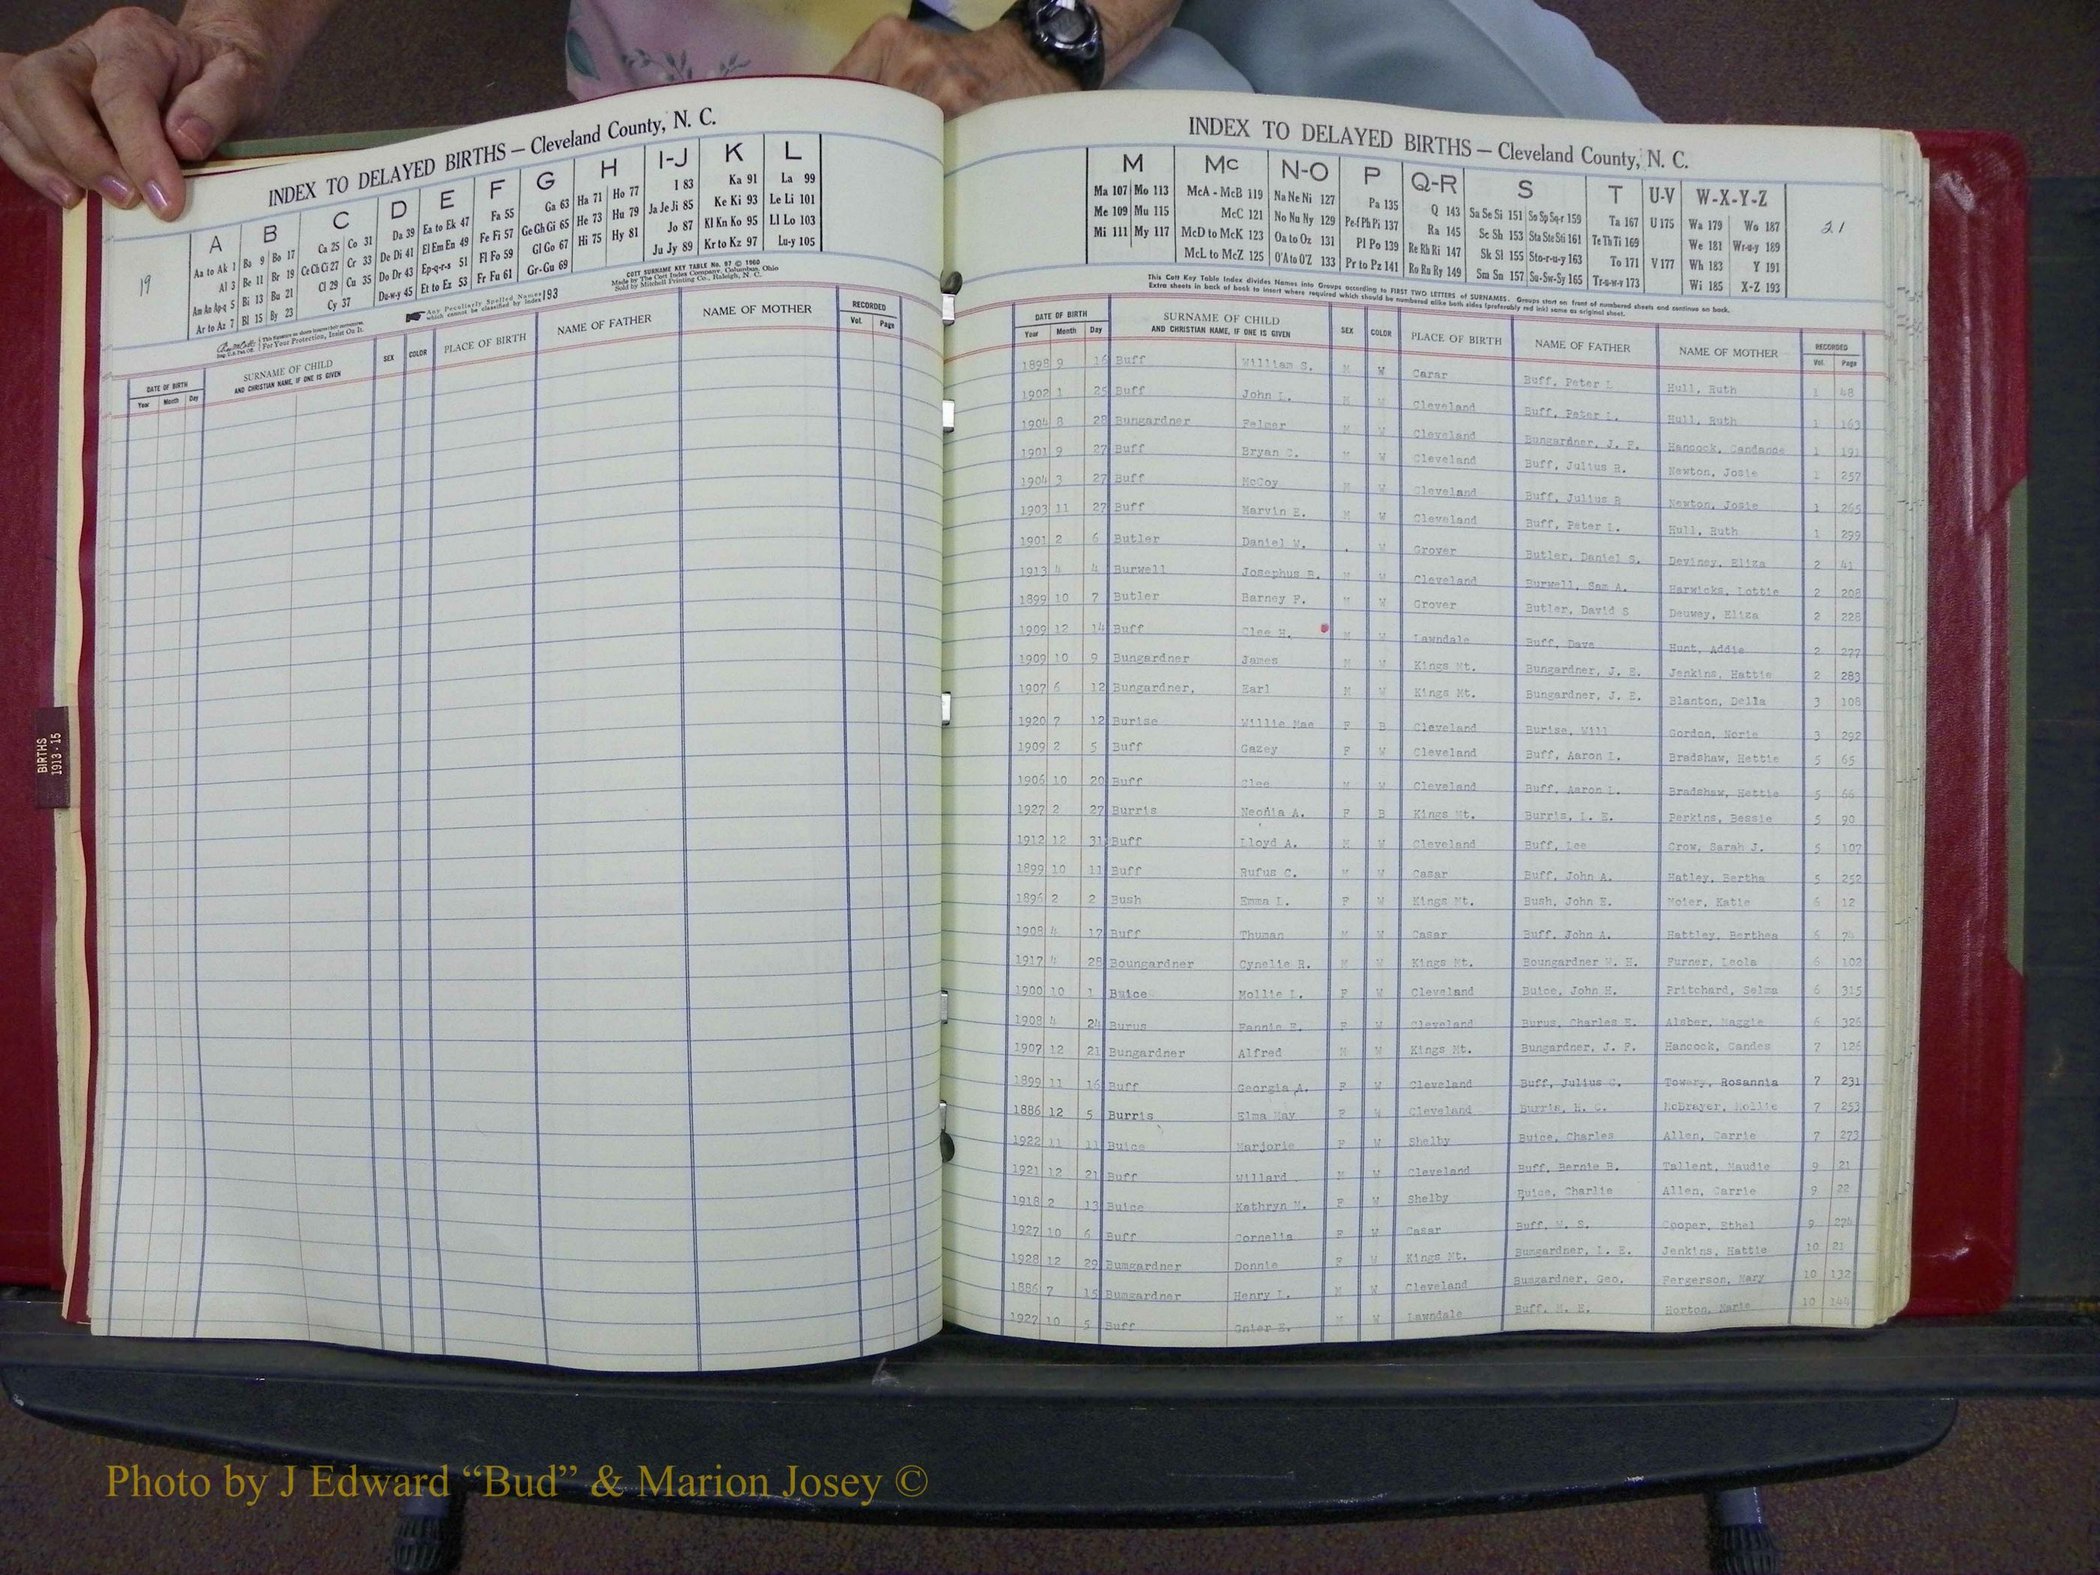 INDEX TO DELAYED BIRTHS — Cleveland County, N. C.
19
A B C D E F G H I-J K L
Aa to Ak 1 Ba 9 Bo 17 Ca 25 Co 31 Da 39 Ea to Ek 47 Fa 55 Ga 63 Ha 71 Ho 77 I 83 Ka 91 La 99
Al 3 Be 11 Br 19 Ce Ch Ci 27 Cr 33 De Di 41 El Em En 49 Fe Fi 57 Ge Gh Gi 65 He 73 Hu 79 Ja Je Ji 85 Ke Ki 93 Le Li 101
Am An Ap-q 5 Bi 13 Bu 21 Cl 29 Cu 35 Do Dr 43 Ep-q-r-s 51 Fl Fo 59 Gl Go 67 Hi 75 Hy 81 Jo 87 Kl Kn Ko 95 Ll Lo 103
Ar to Az 7 Bl 15 By 23 Cy 37 Du-w-y 45 Et to Ez 53 Fr Fu 61 Gr-Gu 69 Ju Jy 89 Kr to Kz 97 Lu-y 105
For Your Protection, Insist On It.
Any Peculiarly Spelled Names which cannot be classified by Index 193
COTT SURNAME KEY TABLE No. 97 © 1960
Made by The Cott Index Company, Columbus, Ohio
Sold by Mitchell Printing Co., Raleigh, N. C.
DATE OF BIRTH SURNAME OF CHILD AND CHRISTIAN NAME, IF ONE IS GIVEN SEX COLOR PLACE OF BIRTH NAME OF FATHER NAME OF MOTHER RECORDED
Year Month Day Vol. Page
INDEX TO DELAYED BIRTHS — Cleveland County, N. C.
21
M Mc N-O P Q-R S T U-V W-X-Y-Z
Ma 107 Mo 113 McA - McB 119 Na Ne Ni 127 Pa 135 Q 143 Sa Se Si 151 So Sp Sq-r 159 Ta 167 U 175 Wa 179 Wo 187
Me 109 Mu 115 McC 121 No Nu Ny 129 Pe-f Ph Pi 137 Ra 145 Sc Sh 153 Sta Ste Sti 161 Te Th Ti 169 We 181 Wr-u-y 189
Mi 111 My 117 McD to McK 123 Oa to Oz 131 Pl Po 139 Re Rh Ri 147 Sk Sl 155 Sto-r-u-y 163 To 171 V 177 Wh 183 Y 191
McL to McZ 125 O'A to O'Z 133 Pr to Pz 141 Ro Ru Ry 149 Sm Sn 157 Su-Sw-Sy 165 Tr-u-w-y 173 Wi 185 X-Z 193
This Cott Key Table Index divides Names into Groups according to FIRST TWO LETTERS of SURNAMES. Groups start on front of numbered sheets and continue on back.
Extra sheets in back of book to insert where required which should be numbered alike both sides (preferably red ink) same as original sheet.
DATE OF BIRTH SURNAME OF CHILD AND CHRISTIAN NAME, IF ONE IS GIVEN SEX COLOR PLACE OF BIRTH NAME OF FATHER NAME OF MOTHER RECORDED
Year Month Day Vol. Page
1898 9 16 Buff William S. M W Carar Buff, Peter L Hull, Ruth 1 48
1902 1 25 Buff John L. M W Cleveland Buff, Peter L. Hull, Ruth 1 163
1904 8 28 Bungardner Felmer M W Cleveland Bungardner, J. F. Hancock, Candance 1 191
1901 9 27 Buff Bryan C. M W Cleveland Buff, Julius R. Newton, Josie 1 257
1904 3 27 Buff McCoy M W Cleveland Buff, Julius R Newton, Josie 1 265
1903 11 27 Buff Marvin E. M W Cleveland Buff, Peter L. Hull, Ruth 1 299
1901 2 6 Butler Daniel W. W Grover Butler, Daniel S. Deviney, Eliza 2 41
1913 4 4 Burwell Josephus B. M W Cleveland Burwell, Sam A. Harwicks, Lottie 2 208
1899 10 7 Butler Barney P. M W Grover Butler, David S Deuwey, Eliza 2 228
1909 12 14 Buff Clee H. M W Lawndale Buff, Dave Hunt, Addie 2 277
1909 10 9 Bungardner James M W Kings Mt. Bungardner, J. E. Jenkins, Hattie 2 283
1907 6 12 Bungardner, Earl M W Kings Mt. Bungardner, J. E. Blanton, Della 3 108
1920 7 12 Burise Willie Mae F B Cleveland Burise, Will Gordon, Norie 3 292
1909 2 5 Buff Gazey F W Cleveland Buff, Aaron L. Bradshaw, Hettie 5 65
1906 10 20 Buff Clee M W Cleveland Buff, Aaron L. Bradshaw, Hettie 5 66
1927 2 27 Burris Neonia A. F B Kings Mt. Burris, L. E. Perkins, Bessie 5 90
1912 12 31 Buff Lloyd A. M W Cleveland Buff, Lee Crow, Sarah J. 5 107
1899 10 11 Buff Rufus C. M W Casar Buff, John A. Hatley, Bertha 5 252
1896 2 2 Bush Emma L. F W Kings Mt. Bush, John E. Moier, Katie 6 12
1908 4 17 Buff Thuman M W Casar Buff, John A. Hattley, Berthea 6 74
1917 4 28 Boungardner Cynelie R. M W Kings Mt. Boungardner W. H. Furner, Leola 6 102
1900 10 1 Buice Mollie L. F W Cleveland Buice, John H. Pritchard, Selma 6 315
1908 4 24 Burus Fannie E. F W Cleveland Burus, Charles E. Alsber, Maggie 6 326
1907 12 21 Bungardner Alfred M W Kings Mt. Bungardner, J. F. Hancock, Candes 7 126
1899 11 16 Buff Georgia A. F W Cleveland Buff, Julius C. Towery, Rosannia 7 231
1886 12 5 Burris Elma May F W Cleveland Burris, H. C. McBrayer, Mollie 7 253
1922 11 11 Buice Marjorie F W Shelby Buice, Charles Allen, Carrie 7 273
1921 12 21 Buff Willard M W Cleveland Buff, Bernie B. Tallent, Maudie 9 21
1918 2 13 Buice Kathryn M. F W Shelby Buice, Charlie Allen, Carrie 9 22
1927 10 6 Buff Cornelia F W Casar Buff, W. S. Cooper, Ethel 9 274
1928 12 29 Bumgardner Donnie F W Kings Mt. Bumgardner, L. E. Jenkins, Hattie 10 21
1886 7 15 Bumgardner Henry L. M W Cleveland Bumgardner, Geo. Fergerson, Mary 10 132
1927 10 5 Buff Gnier E. M W Lawndale Buff, M. E. Horton, Marie 10 144
BIRTHS
1913 - 15
Photo by J Edward “Bud” & Marion Josey ©